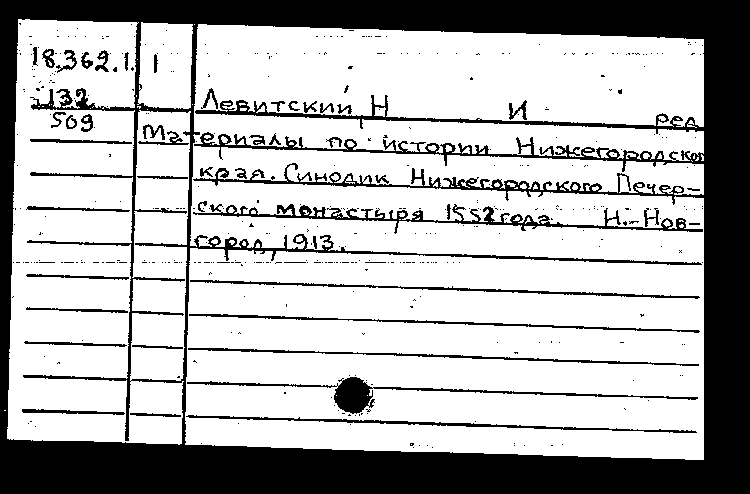 18.362.1. 1
132
Левитский, Н И ред
509
Материалы по истории Нижегородског
края. Синодик Нижегородского Печер-
ского монастыря 1552 года. Н.-Нов-
город, 1913.